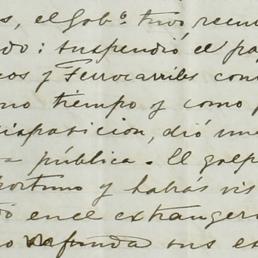 s, el Gobº tuvo recu
do: suspendió el pa
cos y Ferrocarriles con
mo tiempo y como p
disposicion, dió un
a pública. El golp
portuno y habrás vis
en el extrangero
no refunda sus es